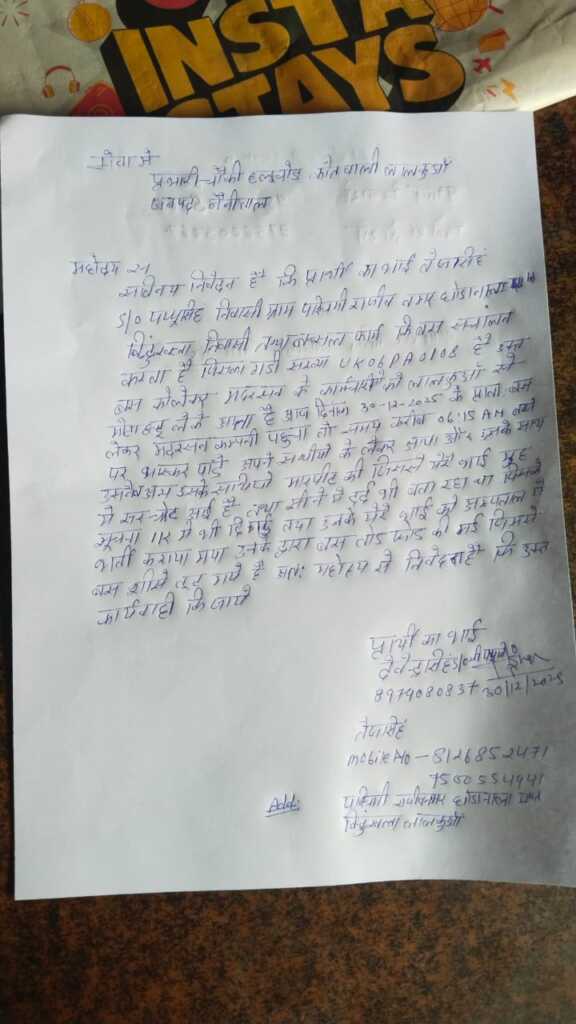 INSTA
STAYS
सेवा में
प्रभारी चौकी हल्दूचौड़ कोतवाली लालकुआँ
जनपद नैनीताल
महोदय
सविनय निवेदन है कि प्रार्थी का भाई तेजसिंह
S/O पप्पूसिंह निवासी ग्राम पश्चिमी राजीव नगर घोडानाला
बिंदुखत्ता निवासी तथा कार्य कि बस संचालन
करता है जिसका गाडी संख्या UK06PA0108 है उक्त
बस के कर्मचारी को लालकुआँ से
लेके आता है आज दिनांक 30-12-2025 के प्रातः बस
लेकर कम्पनी पहुचा तो समय करीब 06:15 AM बजे
पर भास्कर पांडे अपने साथीयो के लेकर आया और उसके साथ
उसने व उसके साथियो मारपीट की जिससे मेरे भाई मुह
में सर चोट आई है तथा सीने में दर्द भी बता रहा था जिसकी
सूचना 112 में भी दि गई तथा उनके मेरे भाई को अस्पताल में
भर्ती कराया गया उनके द्वारा बस तोड फोड की गई जिससे
बस शीसे टूट गये है अतः महोदय से निवेदन है कि उक्त
कार्यवाही कि जाये
प्रार्थी का भाई
देवेन्द्रसिंह S/O
8979080837 30/12/2025
तेजसिंह
mobile No - 8126852471
7500554941
Add: पश्चिमी राजीवनगर घोडानाला
बिंदुखत्ता लालकुआँ